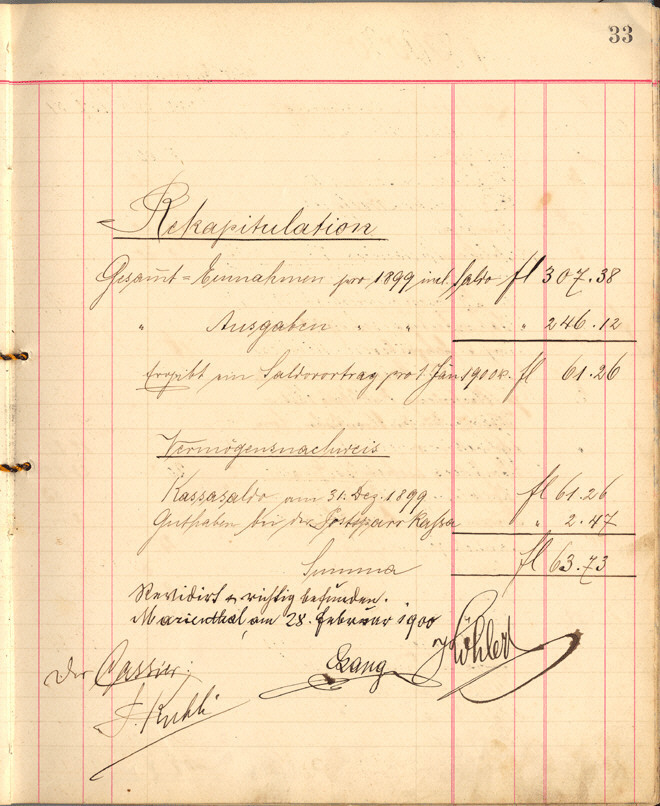 33
Rekapitulation
Gesam̅t = Einnahmen pro 1899 incl. Saldo fl 307.38
" Ausgaben " " " 246.12
Ergibt ein Saldovortrag pro 1. Jän 1900 fl 61.26
Vermögensnachweis
Kassasaldo am 31. Dez. 1899 fl 61.26
Guthaben bei der Postsparrkassa " 2.47
Summa fl 63.73
Revidirt & richtig befunden.
Marienthal, am 28. Februar 1900
Der Cassier: Lang Köhler